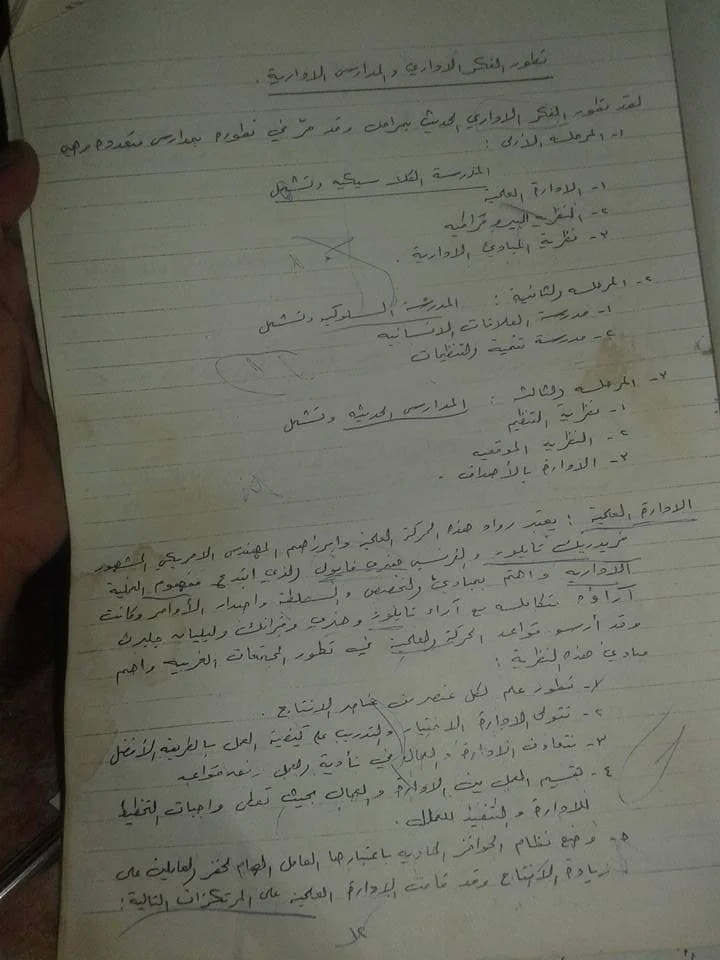 تطور الفكر الاداري والمدارس الادارية .
لقد تطور الفكر الاداري الحديث بمراحل وقد مرّ في تطوره بمدارس متعددة وهي
١- المرحلة الأولى :
المدرسة الكلاسيكية وتشمل
١- الادارة العلمية
٢- النظرية البيروقراطية
٣- نظرية المبادئ الادارية .
٢- المرحلة والثانية : المدرسة السلوكية وتشمل
١- مدرسة العلاقات الانسانية
٢- مدرسة تنمية والتنظيمات
٣- المرحلة والثالثة : المدارس الحديثة وتشمل
١- نظرية التنظيم
٢- النظرية الموقفية
٣- الادارة بالأهداف .
الادارة العلمية : يعتبر رواد هذه الحركة العلمية وابرزهم المهندس الامريكي المشهور
فريدريك تايلور والفرنسي هنري فايول الذي ابتدع مفهوم العملية
الادارية واهتم بمبادئ والتخصص والسلطة واصدار الأوامر وكانت
آراؤه متكاملة مع آراء تايلور وهنري وفرانك وليليان جلبرت
وقد أرسو قواعد الحركة العلمية في تطور المجتمعات الغربية واهم
مبادئ هذه النظرية :
١- تطور علم لكل عنصر من عناصر الانتاج .
٢- تتولى الادارة الاختيار والتدريب على كيفية العمل بالطريقة الأفضل
٣- تتعاون الادارة والعمال في تأدية العمل وفق قواعد
٤- تقسيم العمل بين الادارة والعمال بحيث تعطى واجبات التخطيط
للادارة والتنفيذ للعمال .
٥- وضع نظام الحوافز المادية باعتبارها العامل الهام لحفز العاملين على
زيادة الانتاج وقد قامت الادارة العلمية على المرتكزات التالية :